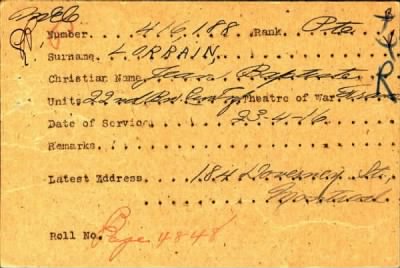 Number 416,188 Rank Pte
Surname LORRAIN
Christian Name Jean Baptiste
Unit 22nd Bn Theatre of War France
Date of Service 23-4-16
Remarks
Latest Address 184 St.
Montreal
Roll No. Page 4848